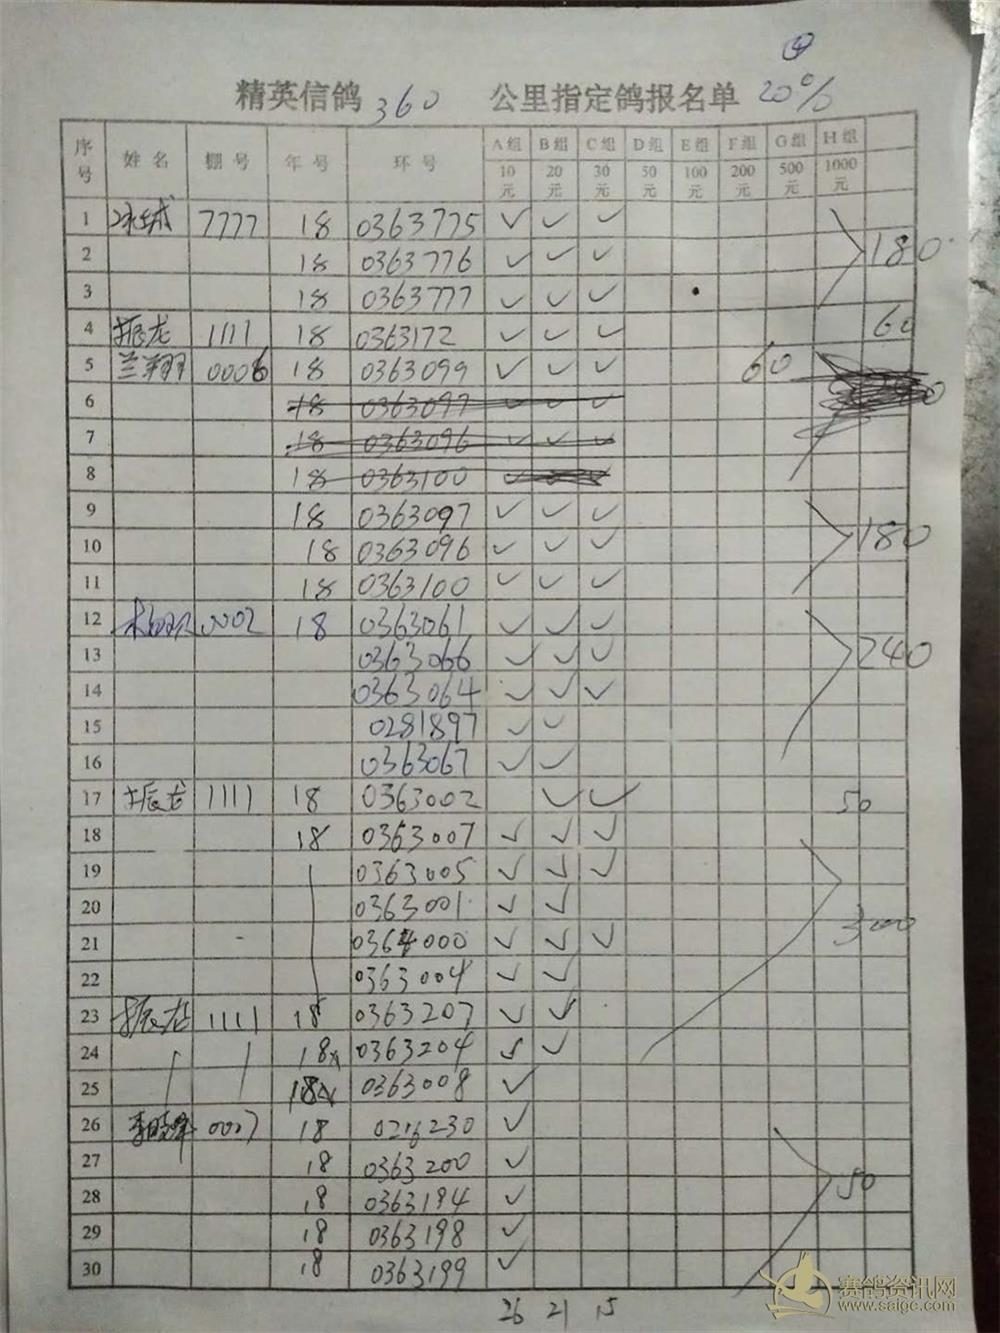 ④
精英信鸽 360 公里指定鸽报名单 20%
序号 姓名 棚号 年号 环号 A组 B组 C组 D组 E组 F组 G组 H组
10元 20元 30元 50元 100元 200元 500元 1000元
1 冰城 7777 18 0363775 ✓ ✓ ✓
2 18 0363776 ✓ ✓ ✓ 180
3 18 0363777 ✓ ✓ ✓
4 振龙 1111 18 0363172 ✓ ✓ ✓ 60
5 兰翔 0006 18 0363099 ✓ ✓ ✓ 60
6 18 0363097 ✓ ✓ ✓
7 18 0363096 ✓ ✓ ✓
8 18 0363100 ✓ ✓ ✓
9 18 0363097 ✓ ✓ ✓
10 18 0363096 ✓ ✓ ✓ 180
11 18 0363100 ✓ ✓ ✓
12 0002 18 0363061 ✓ ✓ ✓
13 0363066 ✓ ✓ ✓ 240
14 0363064 ✓ ✓ ✓
15 0281897 ✓ ✓
16 0363067 ✓ ✓
17 振龙 1111 18 0363002 ✓ ✓ 50
18 18 0363007 ✓ ✓ ✓
19 0363005 ✓ ✓ ✓
20 0363001 ✓ ✓
21 0364000 ✓ ✓ ✓ 300
22 0363004 ✓ ✓
23 振龙 1111 18 0363207 ✓ ✓
24 18 0363204 ✓ ✓
25 18 0363008 ✓
26 李晓峰 0007 18 0216230 ✓
27 18 0363200 ✓ 50
28 18 0363194 ✓
29 18 0363198 ✓
30 18 0363199 ✓
26 21 15
赛鸽资讯网
www.saige.com